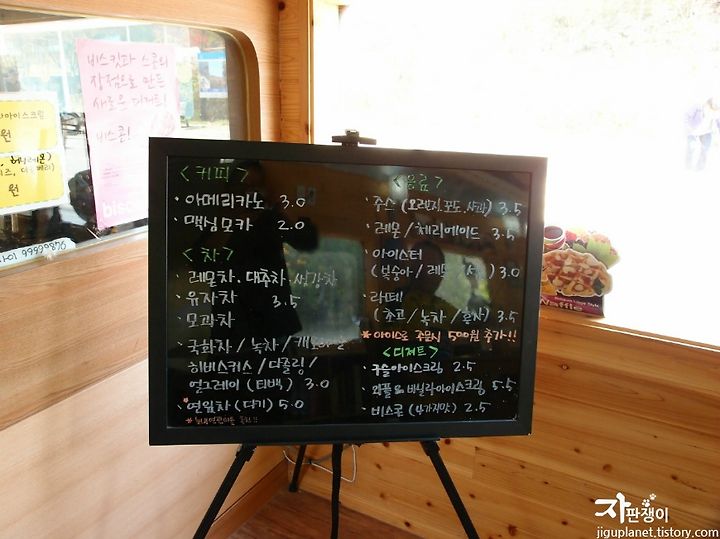 비스킷과 스콘의
장점으로 만든
새로운 디저트!
비스콘!
원
원
<커피>
· 아메리카노 3.0
· 맥심모카 2.0
<차>
· 레몬차. 대추차. 생강차
· 유자차 3.5
· 모과차
· 국화차 / 녹차 /
히비스커스 / 다즐링 /
얼그레이 (티백) 3.0
· 연잎차 (다기) 5.0
<음료>
· 주스 (오렌지.포도.사과) 3.5
· 레몬 / 체리에이드 3.5
· 아이스티
(복숭아 / 레몬 / ) 3.0
· 라떼
(초코 / 녹차 / 홍차) 3.5
* 아이스로 주문시 500원 추가!!
<디저트>
· 구슬아이스크림 2.5
· 와플&바닐라아이스크림 5.5
· 비스콘 (4가지맛) 2.5
Waffle
자판쟁이
jiguplanet.tistory.com